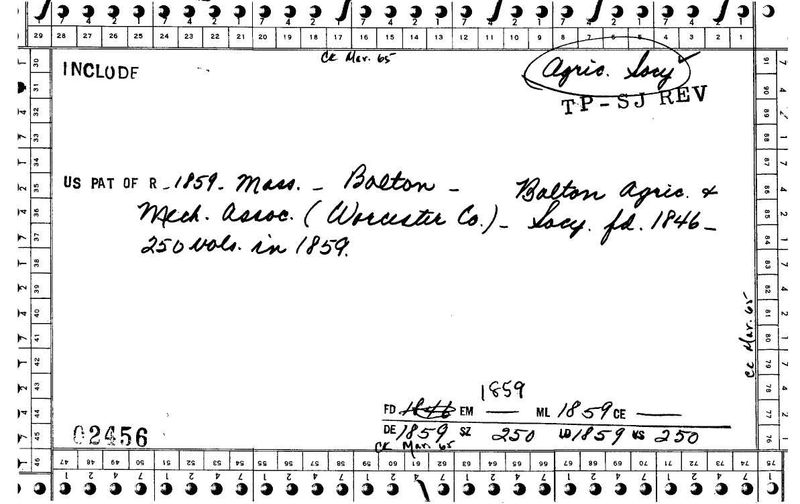 7 4 2 1 7 4 2 1 7 4 2 1 7 4 2 1 7 4 2 1 7 4 2 1
29 28 27 26 25 24 23 22 21 20 19 18 17 16 15 14 13 12 11 10 9 8 7 6 5 4 3 2 1
CK Mar. 65
INCLUDE
Agric. Socy
TP-SJ REV
US PAT OF R - 1859 - Mass. - Bolton - Bolton Agric. &
Mech. Assoc. (Worcester Co.) - Socy. fd. 1846 -
250 vols. in 1859.
30 31 32 33 34 35 36 37 38 39 40 41 42 43 44 45 46
91 90 89 88 87 86 85 84 83 82 81 80 79 78 77 76
CK Mar. 65
1859
FD 1846 EM — ML 1859 CE —
DE 1859 SZ 250 LD 1859 VS 250
CK Mar. 65
02456
47 48 49 50 51 52 53 54 55 56 57 58 59 60 61 62 63 64 65 66 67 68 69 70 71 72 73 74 75